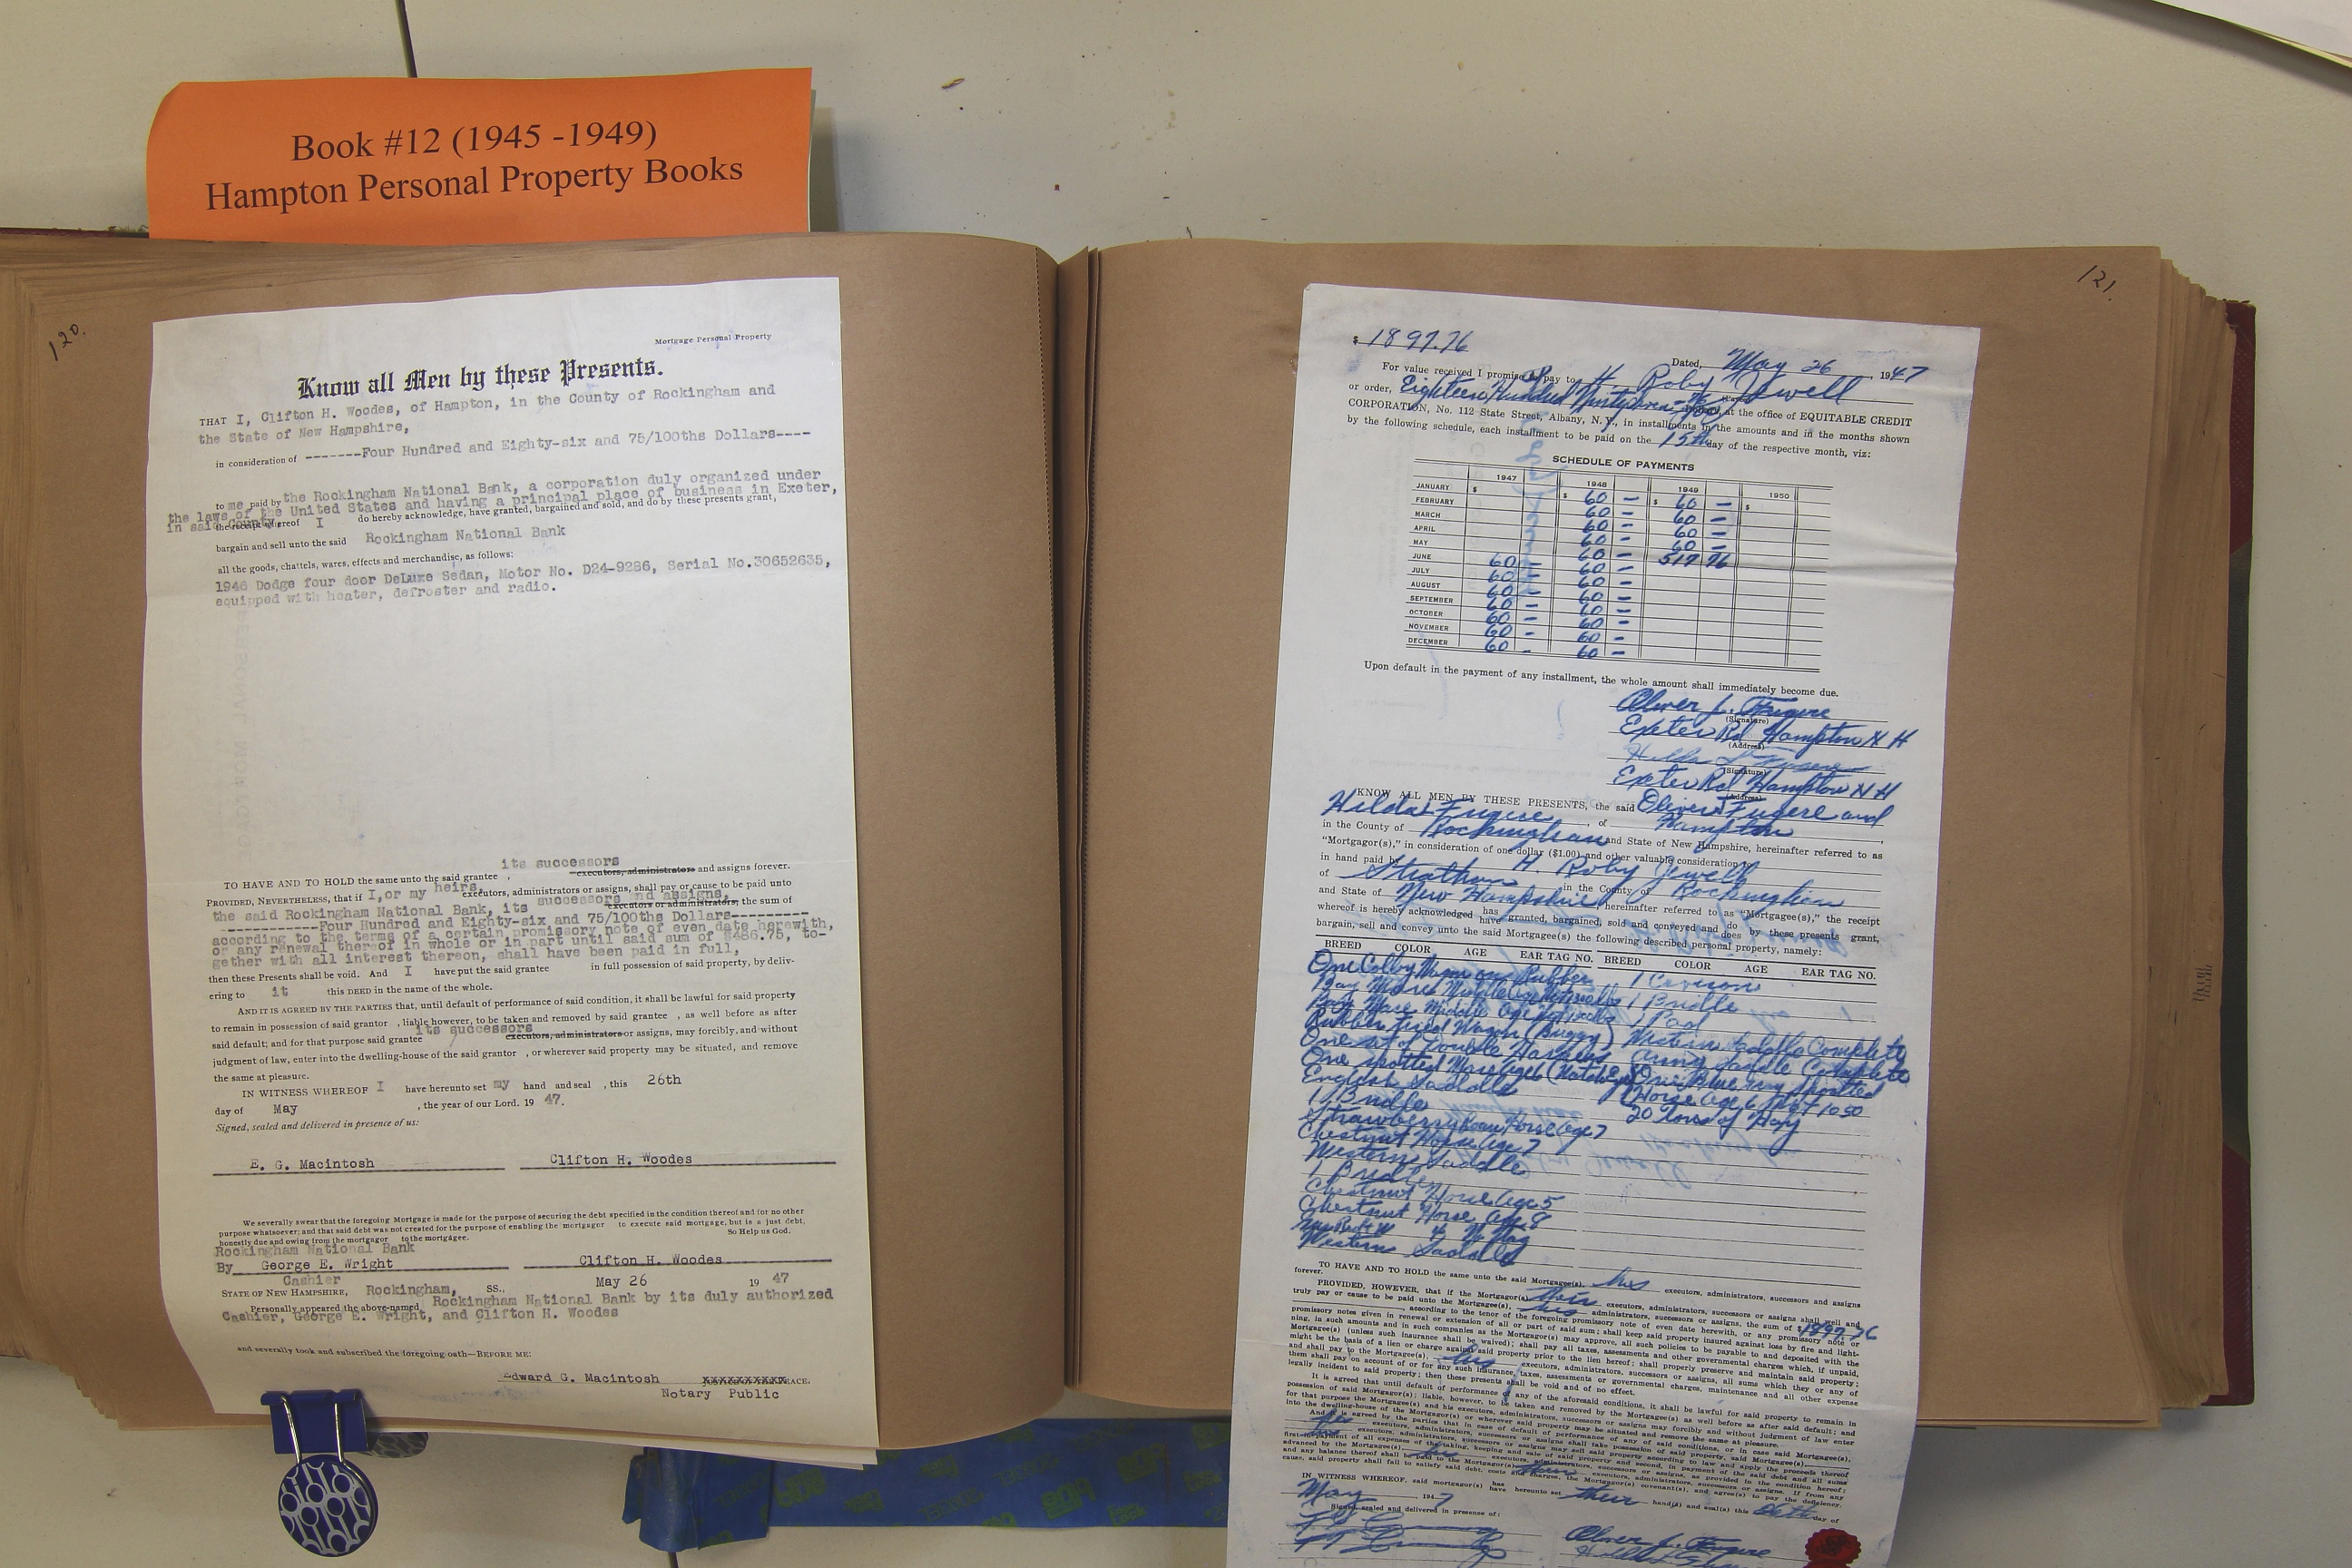 Book #12 (1945 -1949)
Hampton Personal Property Books
120.
Mortgage Personal Property
Know all Men by these Presents.
THAT I, Clifton H. Woodes, of Hampton, in the County of Rockingham and
the State of New Hampshire,
in consideration of -------Four Hundred and Eighty-six and 75/100ths Dollars----
to me paid by the Rockingham National Bank, a corporation duly organized under
the laws of the United States and having a principal place of business in Exeter,
in said County,
the receipt whereof I do hereby acknowledge, have granted, bargained and sold, and do by these presents grant,
bargain and sell unto the said Rockingham National Bank
all the goods, chattels, wares, effects and merchandise, as follows:
1946 Dodge four door DeLuxe Sedan, Motor No. D24-9286, Serial No.30652635,
equipped with heater, defroster and radio.
its successors
TO HAVE AND TO HOLD the same unto the said grantee , executors, administrators and assigns forever.
PROVIDED, NEVERTHELESS, that if I,or my heirs, executors, administrators or assigns, shall pay or cause to be paid unto
the said Rockingham National Bank, its successors and assigns, executors or administrators, the sum of
-----------Four Hundred and Eighty-six and 75/100ths Dollars---------
according to the terms of a certain promissory note of even date herewith,
or any renewal thereof in whole or in part until said sum of $486.75, to-
gether with all interest thereon, shall have been paid in full,
then these Presents shall be void. And I have put the said grantee in full possession of said property, by deliv-
ering to it this DEED in the name of the whole.
AND IT IS AGREED BY THE PARTIES that, until default of performance of said condition, it shall be lawful for said property
to remain in possession of said grantor , liable however, to be taken and removed by said grantee , as well before as after
said default; and for that purpose said grantee its successors executors, administrators or assigns, may forcibly, and without
judgment of law, enter into the dwelling-house of the said grantor , or wherever said property may be situated, and remove
the same at pleasure.
IN WITNESS WHEREOF I have hereunto set my hand and seal , this 26th
day of May , the year of our Lord. 19 47.
Signed, sealed and delivered in presence of us:
E. G. Macintosh Clifton H. Woodes
We severally swear that the foregoing Mortgage is made for the purpose of securing the debt specified in the condition thereof and for no other
purpose whatsoever; and that said debt was not created for the purpose of enabling the mortgagor to execute said mortgage, but is a just debt,
honestly due and owing from the mortgagor to the mortgagee. So Help us God.
Rockingham National Bank
By George E. Wright Clifton H. Woodes
Cashier
STATE OF NEW HAMPSHIRE, Rockingham, SS., May 26 19 47
Personally appeared the above-named Rockingham National Bank by its duly authorized
Cashier, George E. Wright, and Clifton H. Woodes
and severally took and subscribed the foregoing oath—BEFORE ME:
Edward G. Macintosh
Notary Public
121.
$ 1897.76
Dated, May 26 1947
For value received I promise to pay to H. Roby Jewell
or order, Eighteen Hundred Ninty Seven at the office of EQUITABLE CREDIT
CORPORATION, No. 112 State Street, Albany, N. Y., in installments in the amounts and in the months shown
by the following schedule, each installment to be paid on the 15th day of the respective month, viz:
SCHEDULE OF PAYMENTS
1947 1948 1949 1950
JANUARY $ $ 60 — $ 60 — $
FEBRUARY 60 — 60 —
MARCH 60 — 60 —
APRIL 60 — 60 —
MAY 60 — 60 —
JUNE 60 — 60 — 517 76
JULY 60 — 60 —
AUGUST 60 — 60 —
SEPTEMBER 60 — 60 —
OCTOBER 60 — 60 —
NOVEMBER 60 — 60 —
DECEMBER 60 — 60 —
Upon default in the payment of any installment, the whole amount shall immediately become due.
Oliver J. Fugere
(Signature)
Exeter Rd Hampton N H
(Address)
Hilda Fugere
(Signature)
Exeter Rd Hampton N H
(Address)
KNOW ALL MEN BY THESE PRESENTS, the said Oliver J Fugere and
Hilda Fugere , of Hampton
in the County of Rockingham and State of New Hampshire, hereinafter referred to as
"Mortgagor(s)," in consideration of one dollar ($1.00) and other valuable consideration to
in hand paid by H. Roby Jewell
of Stratham in the County of Rockingham
and State of New Hampshire, hereinafter referred to as "Mortgagee(s)," the receipt
whereof is hereby acknowledged has have granted, bargained, sold and conveyed and does do by these presents grant,
bargain, sell and convey unto the said Mortgagee(s) the following described personal property, namely:
BREED COLOR AGE EAR TAG NO. BREED COLOR AGE EAR TAG NO.
One Colby Wagon on Rubber
Bay Mare Middle Age
Bay Mare Middle Age
Rubber Tired Wagon (Buggy)
One set of Double Harness
One spotted Mare age 6
English Saddle
1 Bridle
Strawberry Roan Horse age 7
Chestnut Horse age 7
Western Saddle
1 Bridle
Chestnut Horse age 5
Chestnut Horse age 8
Western Saddle
1 Bridle
1 Pad
Western Saddle Complete
Army Saddle Complete
One Blue Gray Spotted
Horse age 6 1050
20 Tons of Hay
TO HAVE AND TO HOLD the same unto the said Mortgagee(s), his executors, administrators, successors and assigns
forever.
PROVIDED, HOWEVER, that if the Mortgagor(s), their executors, administrators, successors or assigns shall well and
truly pay or cause to be paid unto the Mortgagee(s), his administrators, successors or assigns, the sum of $1897.76
, according to the tenor of the foregoing promissory note of even date herewith, or any promissory note or
promissory notes given in renewal or extension of all or part of said sum; shall keep said property insured against loss by fire and light-
ning, in such amounts and in such companies as the Mortgagor(s) may approve, all such policies to be payable to and deposited with the
Mortgagee(s) (unless such insurance shall be waived); shall pay all taxes, assessments and other governmental charges which, if unpaid,
might be the basis of a lien or charge against said property prior to the lien hereof; shall properly preserve and maintain said property;
and shall pay to the Mortgagee(s), his executors, administrators, successors or assigns, all sums which they or any of
them shall pay on account of or for any such insurance, taxes, assessments or governmental charges, maintenance and all other expense
legally incident to said property; then these presents shall be void and of no effect.
It is agreed that until default of performance of any of the aforesaid conditions, it shall be lawful for said property to remain in
possession of said Mortgagor(s); liable, however, to be taken and removed by the Mortgagee(s) as well before as after said default; and
for that purpose the Mortgagee(s) and his executors, administrators, successors or assigns, may forcibly and without judgment of law enter
into the dwelling-house of the Mortgagor(s) or wherever said property may be situated and remove the same at pleasure.
IN WITNESS WHEREOF, said mortgagor(s) has have hereunto set their hand(s) and seal(s) this 26th day of
May , 1947
Signed, sealed and delivered in presence of:
Oliver J. Fugere